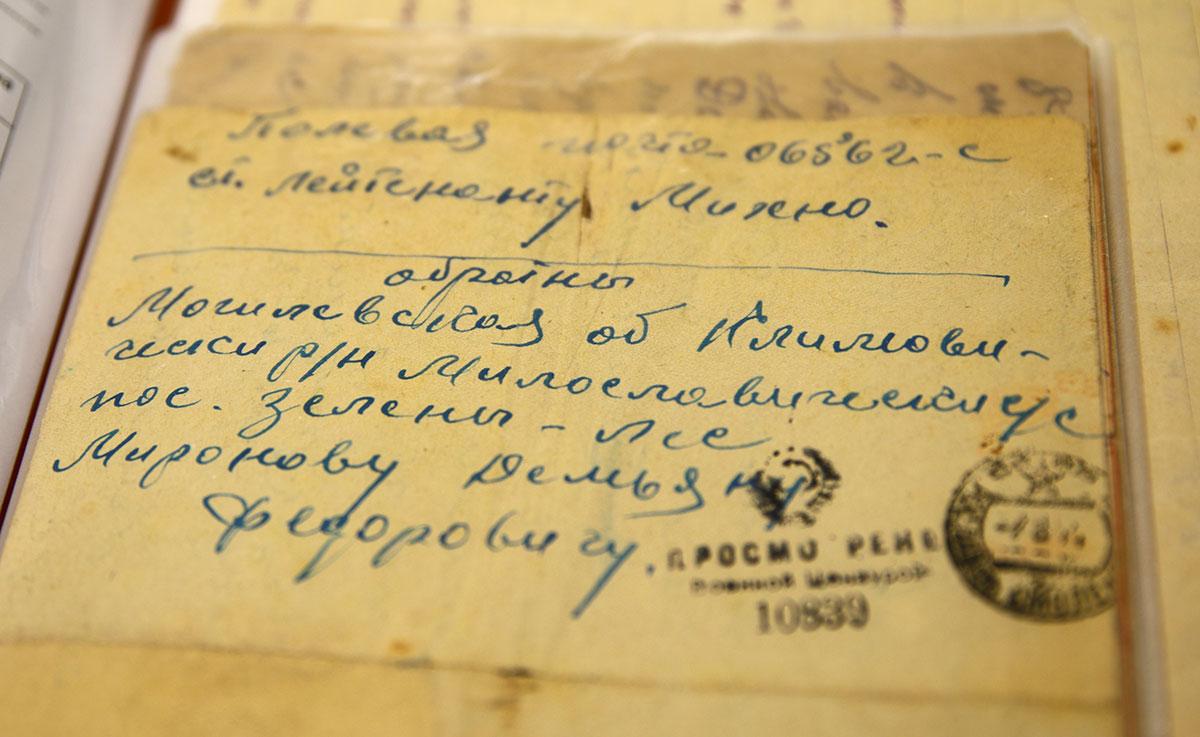 Полевая почта 06562-с
ст. лейтенанту Михно.
обратны
Могилевская об Климови-
чски р/н Милославически с/с
пос. Зелены-Лес
Миронову Демьяну
Федоровичу.
ПРОСМОТРЕНО
Военной Цензурой
10839